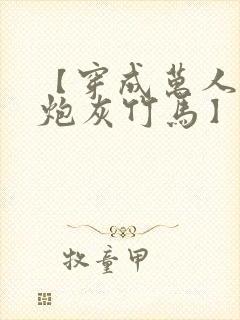 【穿成萬人
炮灰竹馬】
牧童甲